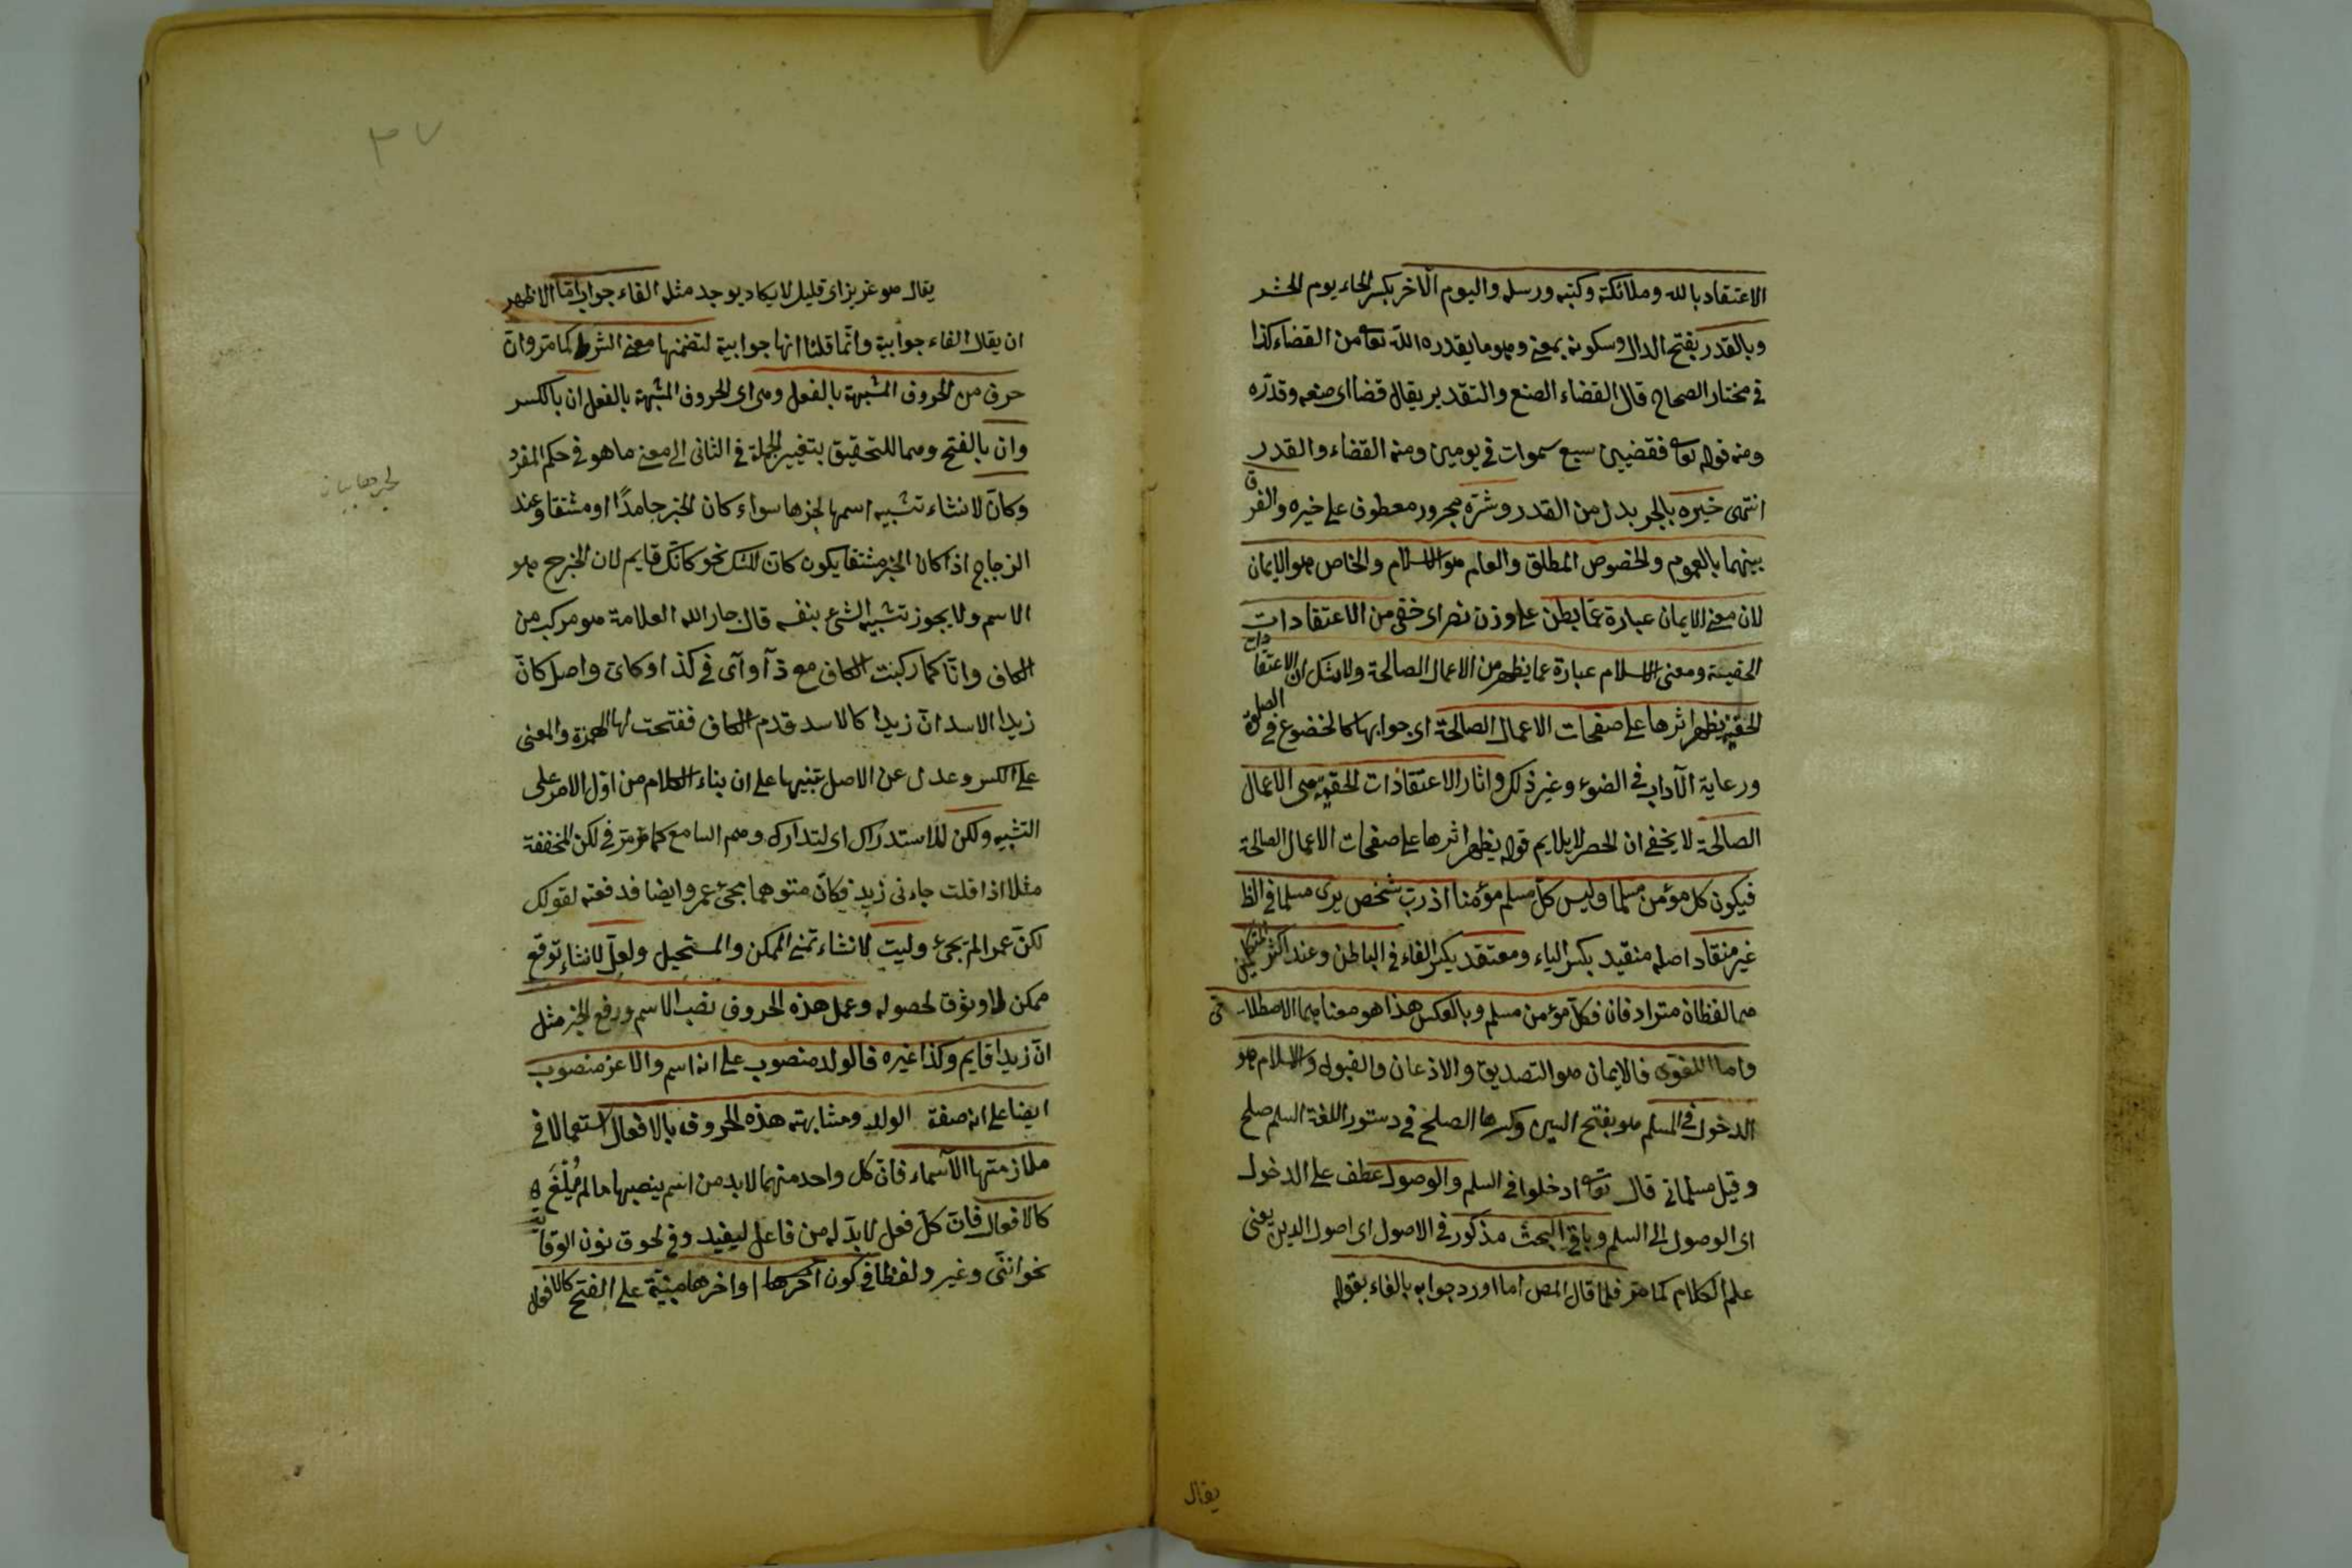 الاعتقاد بالله وملائكته وكتبه ورسله واليوم الآخر بكسر الخاء يوم الحشر
وبالقدر بفتح الدال وسكونه بمعنى وهو ما يقدره الله تعا من القضاء كذا
في مختار الصحاح قال القضاء الصنع والتقدير يقال قضا اى صنعه وقدّره
ومنه قوله تعا فقضيهن سبع سموات في يومين ومنه القضاء والقدر
انتهى خيره بالجر بدل من القدر وشرّه مجرور معطوف على خيره والفرق
بينهما بالعموم والخصوص المطلق والعام هو الاسلام والخاص هو الايمان
لان معنى الايمان عبارة عمّا بطن على وزن نصر اى خفى من الاعتقادات
الحقيّة ومعنى الاسلام عبارة عما يظهر من الاعمال الصالحة ولا شك ان الاعتقادات
الحقيّة يظهر اثرها على صفحات الاعمال الصالحة اى جوابها كالخضوع في الصلوة
ورعاية الآداب في الضوء وغير ذلك واثار الاعتقادات الحقيّة هى الاعمال
الصالحة لا يخفى ان الحصر لا يلايم قوله يظهر اثرها على صفحات الاعمال الصالحة
فيكون كل مؤمن مسلما وليس كلّ مسلم مؤمنا اذ ربّ شخص يرى مسلما في الظ
غير منقاد اصله منقيد بكسر الياء ومعتقد بكسر القاء في الباطن وعند اكثر المتكلمين
هما لفظان مترادفان فكلّ مؤمن مسلم وبالعكس هذا هو معناهما الاصطلاحى
واما اللغوى فالايمان هو التصديق والاذعان والقبول والاسلام هو
الدخول في السلم هو بفتح السين وكسرها الصلح في دستور اللغة السلم صلح
وقيل مسلمانى قال تعا ادخلوا في السلم والوصول عطف على الدخول
اى الوصول الى السلم وباقى البحث مذكور في الاصول اى اصول الدين يعنى
علم الكلام كما مر فلما قال المص اما اورد جوابه بالفاء بقوله
يقال
٣٧
يقال هو عزيز اى قليل لا يكاد يوجد مثله الفاء جواب امّا الاظهر
ان يقال الفاء جوابية وانّما قلنا انها جوابية لتضمنها معنى الشرط كما مر وانّ
حرف من الحروف المشبهة بالفعل وهى اى الحروف المشبهة بالفعل ان بالكسر
وان بالفتح وهما للتحقيق بتغيير الجملة في الثانى الى معنى ما هو في حكم المفرد
وكانّ لانشاء تشبيه اسمها لخبرها سواء كان الخبر جامدًا او مشتقا وعند
الزجاج اذا كان الخبر مشتقا يكون كانّ للشك نحو كانّك قايم لان الخبر ح هو
الاسم ولا يجوز تشبيه الشئ بنفسه قال جار الله العلامة هو مركب من
الكاف وانّ كما ركبت الكاف مع ذا وآى في كذا وكاى واصل كانّ
زيدا الاسد انّ زيدا كالاسد قدم الكاف ففتحت لها الهمزة والمعنى
على الكسر وعدل عن الاصل تنبيها على ان بناء الكلام من اوّل الامر على
التشبيه ولكن للاستدراك اى لتدارك وهم السامع كما مرّ في لكن المخففة
مثلا اذا قلت جاءنى زيد فكان متوهما مجئ عمرو ايضا فدفعته لقولك
لكنّ عمرا لم يجئ وليت لانشاء تمنى الممكن والمستحيل ولعلّ لانشاء توقع
ممكن لا وثوق لحصوله وعمل هذه الحروف نصب الاسم ورفع الخبر مثل
انّ زيدا قايم وكذا غيره فالولد منصوب على انه اسم والاعز منصوب
ايضا على انه صفة الولد ومشابهته هذه الحروف بالافعال استعمالا في
ملازمتها الاسماء فانّ كل واحد منهما لابد من اسم ينصبها ما لم يُلْغَ
كالافعال فانّ كلّ فعل لابدّ له من فاعل ليفيد وفى لحوق نون الوقاية
نحو اننّى وغيره ولفظا في كون آخرها واخرها مبنيّة على الفتح كالافعال